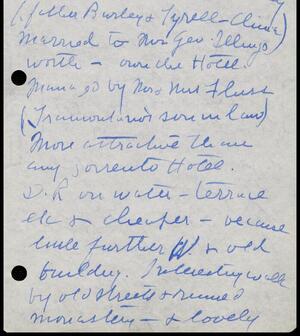 (formerly Burley & Tyrell - China
married to Mrs Geo. Illings
worth - own the Hotel.
Managed by Mr & Mrs
(Tramontano's son in law)
More attractive than
any Sorrento Hotel.
D.R on water - terrace
etc & cheaper - because
little further W. & old
building. Interesting walk
by old streets & ruined
monastery - & lovely